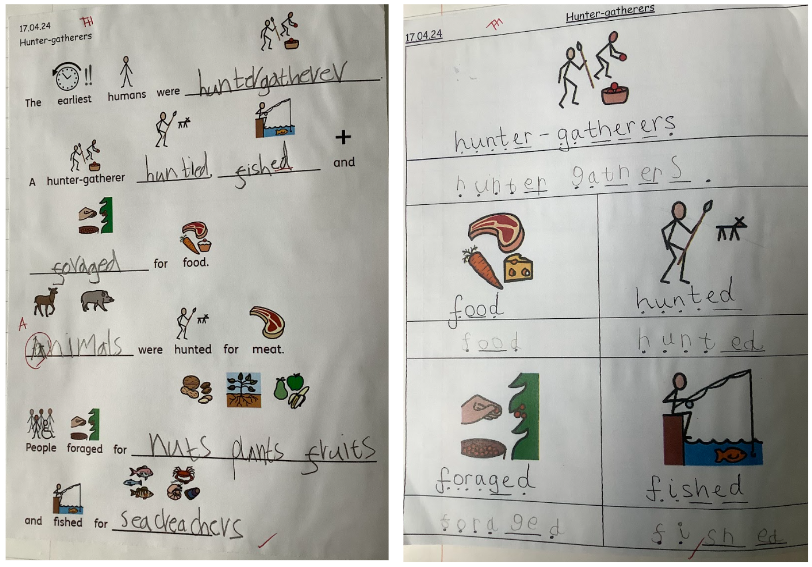 17.04.24
Hunter-gatherers
!!
The earliest humans were huntergatherer.
+
A hunter-gatherer huntied, fished and
foraged for food.
A
Animals were hunted for meat.
People foraged for nuts plants fruits
and fished for seacreachers
Hunter-gatherers
17.04.24
hunter-gatherers
hunter gathers .
food
hunted
food
hunted
foraged
fished
foraged
fished